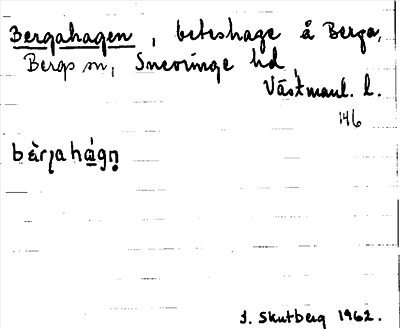 Bergahagen, beteshage å Berga,
Bergs sn, Snevringe hd,
Västmanl. l.
146
bæ̀rjahágn̥
I. Skutberg 1962.